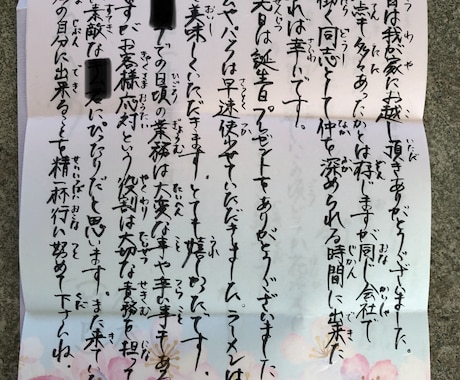 日は我が家にお越し頂きありがとうございました。
多々あったかとは存じますが同じ会社で
働く同志として仲を深められる時間に出来た
れば幸いです。
先日は誕生日プレゼントをありがとうございました
ムやパックは早速使わせていただきました。ラーメンは
美味しくいただきます。とても嬉しかったです。
での日頃の業務は大変な事や辛い事もある
すがお客様応対という役割は大切な責務を担って
素敵な にぴったりだと思います。また来て
の自分に出来ることを精一杯行い努めて下さいね.